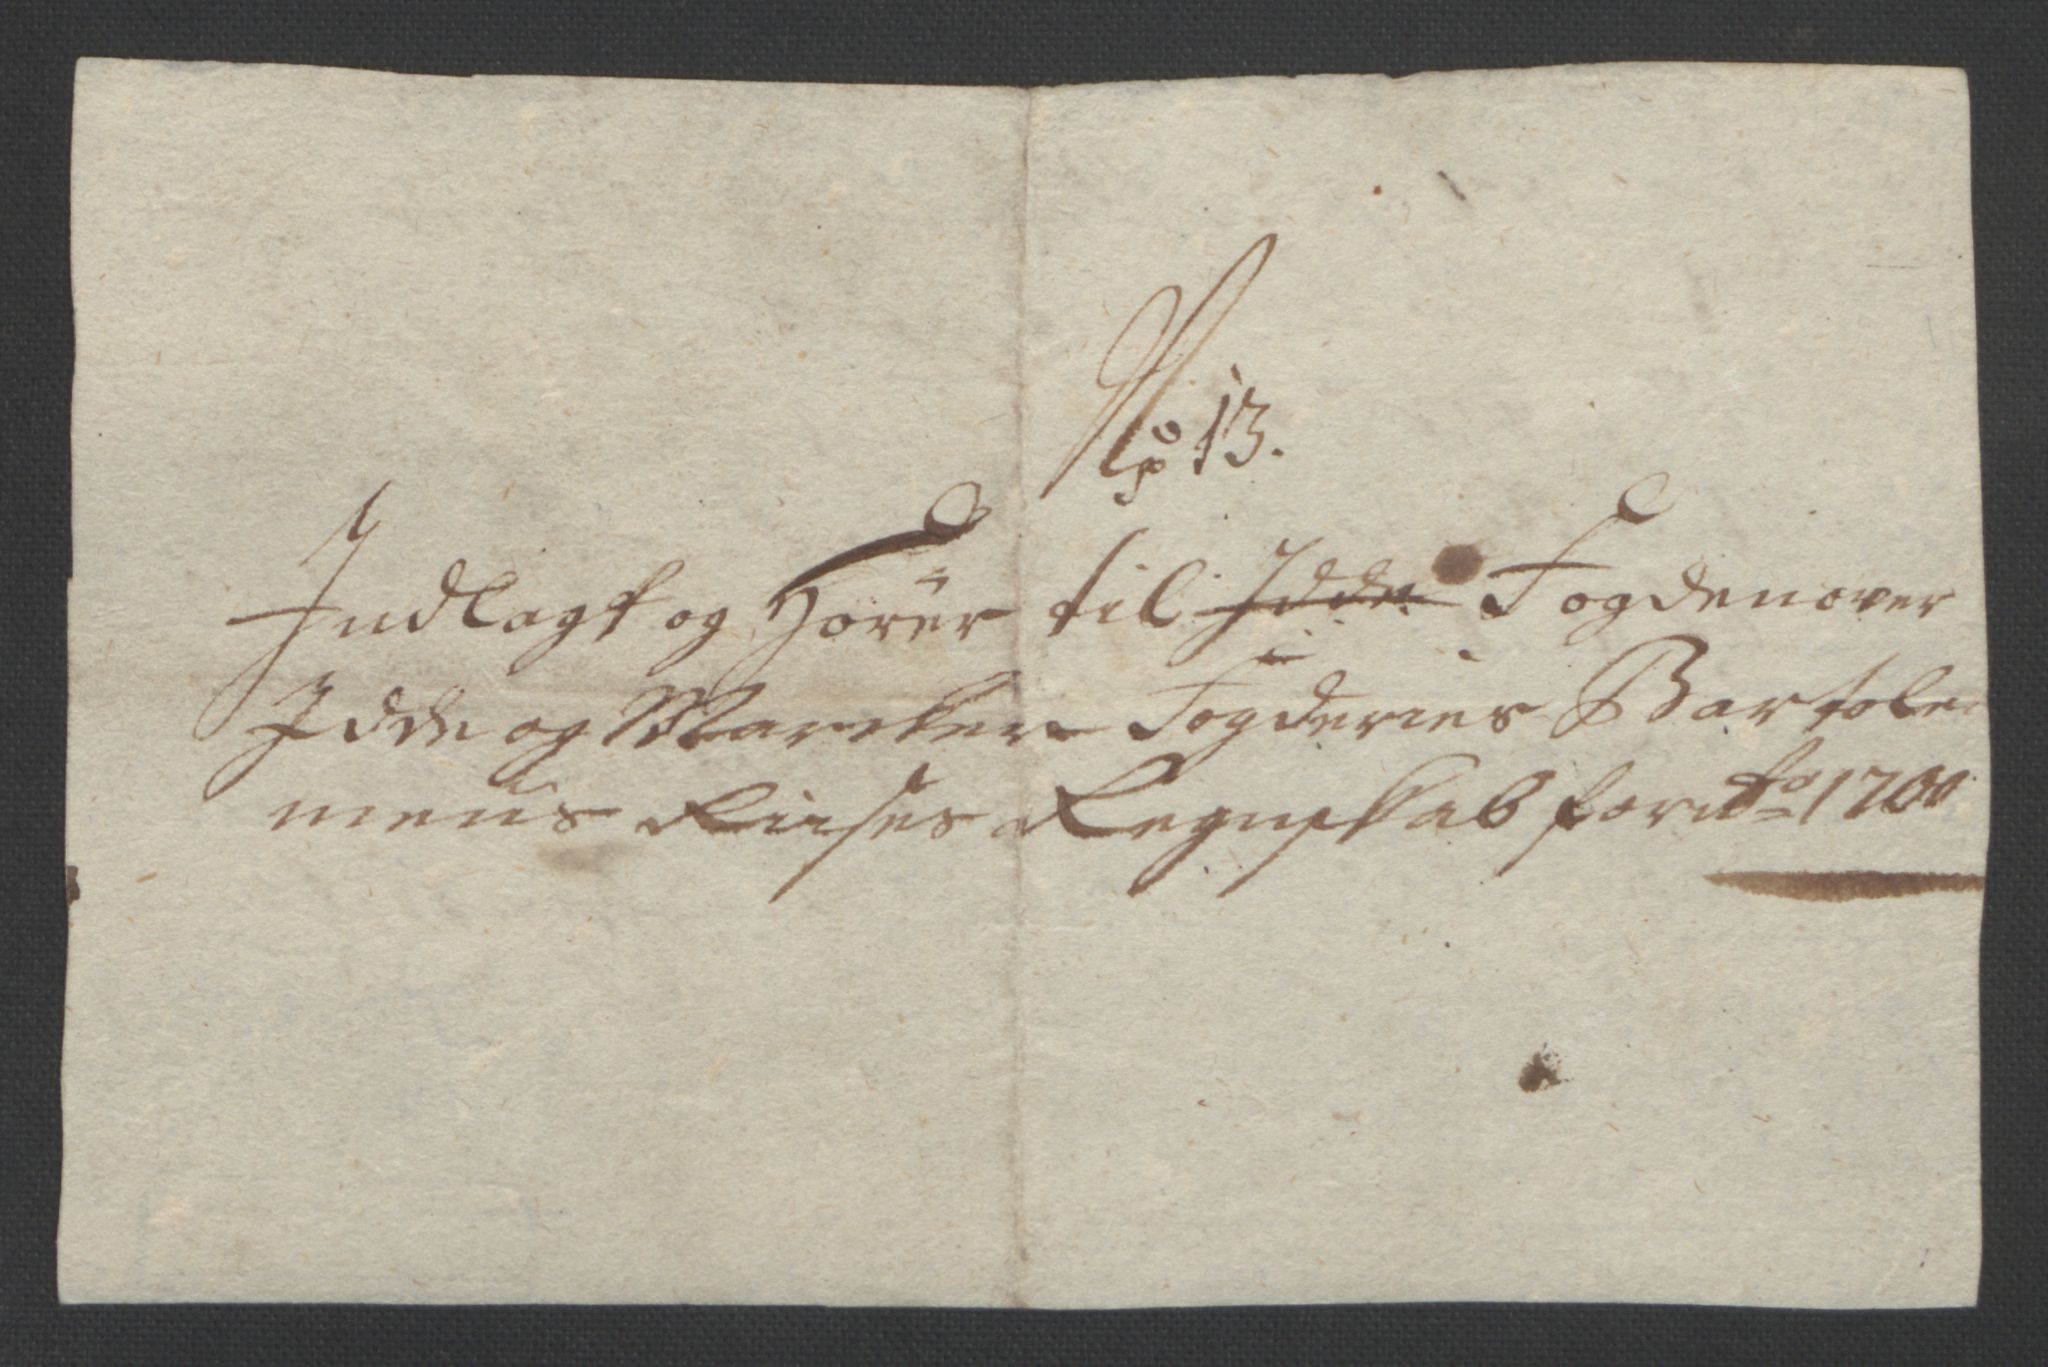 No 13.
Indlagt og Hörer til Idde Fogden over
Idde og Marcker Fogderies Bartole
meus Riises Regnskab for Ao 1700